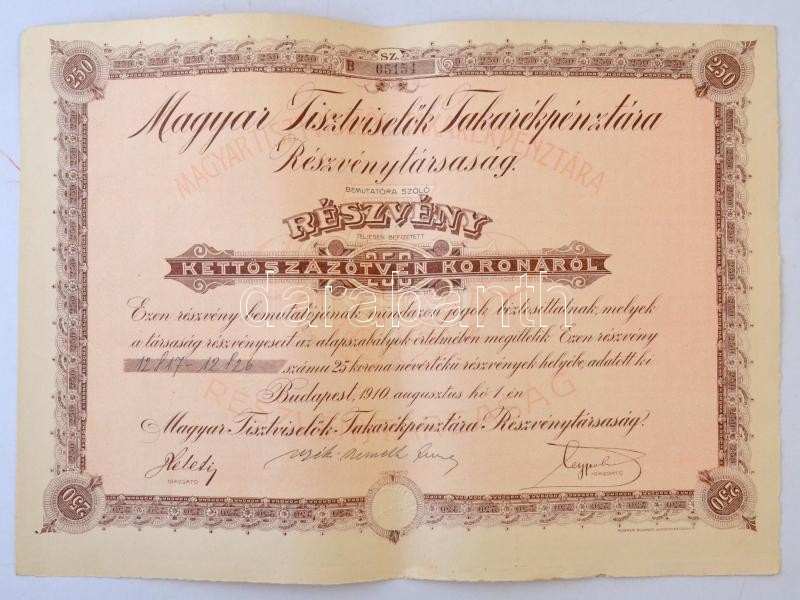 SZ.
B 05151
250
250
Magyar Tisztviselők Takarékpénztára
MAGYAR TISZTVISELŐK TAKARÉKPÉNZTÁRA
Részvénytársaság.
BEMUTATÓRA SZÓLÓ
RÉSZVÉNY
TELJESEN BEFIZETETT
250
KETTŐSZÁZÖTVEN KORONÁRÓL
darabanth
Ezen részvény bemutatójának mindazon jogok biztosíttatnak, melyek
a társaság részvényeseit az alapszabályok értelmében megilletik. Ezen részvény
12817-12826 számú 25 korona névértékű részvények helyébe adatott ki
RÉSZVÉNYTÁRSASÁG
Budapest, 1910. augusztus hó 1-én
Magyar Tisztviselők Takarékpénztára Részvénytársaság.
IGAZGATÓ
IGAZGATÓ
IGAZGATÓ
250
250